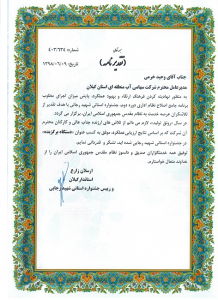 شماره: ۴۰۳/۶۳۴
تاریخ: ۱۳۹۸/۰۶/۰۹
(تقدیرنامه)
جناب آقای وحید خرمی
مدیرعامل محترم شرکت سهامی آب منطقه ای استان گیلان
به منظور نهادینه کردن فرهنگ ارتقاء و بهبود عملکرد، پایش میزان اجرای مطلوب
برنامه جامع اصلاح نظام اداری دوره دوم، جشنواره استانی شهید رجایی با هدف تقدیر از
تلاشگران عرصه خدمت به نظام مقدس جمهوری اسلامی ایران، برگزار می گردد.
در سال «رونق تولید» لازم می دانم از تلاش های ارزنده جناب عالی و کارکنان محترم
آن شرکت که بر اساس نتایج ارزیابی عملکرد، موفق به کسب عنوان «دستگاه برگزیده»
در جشنواره استانی شهید رجایی شده اید، تشکر و قدردانی نمایم.
توفیق همه خدمتگزاران صدیق و دلسوز نظام مقدس جمهوری اسلامی ایران را از
خداوند متعال خواستارم.
ارسلان زارع
استاندار گیلان
و رییس جشنواره استانی شهید رجایی